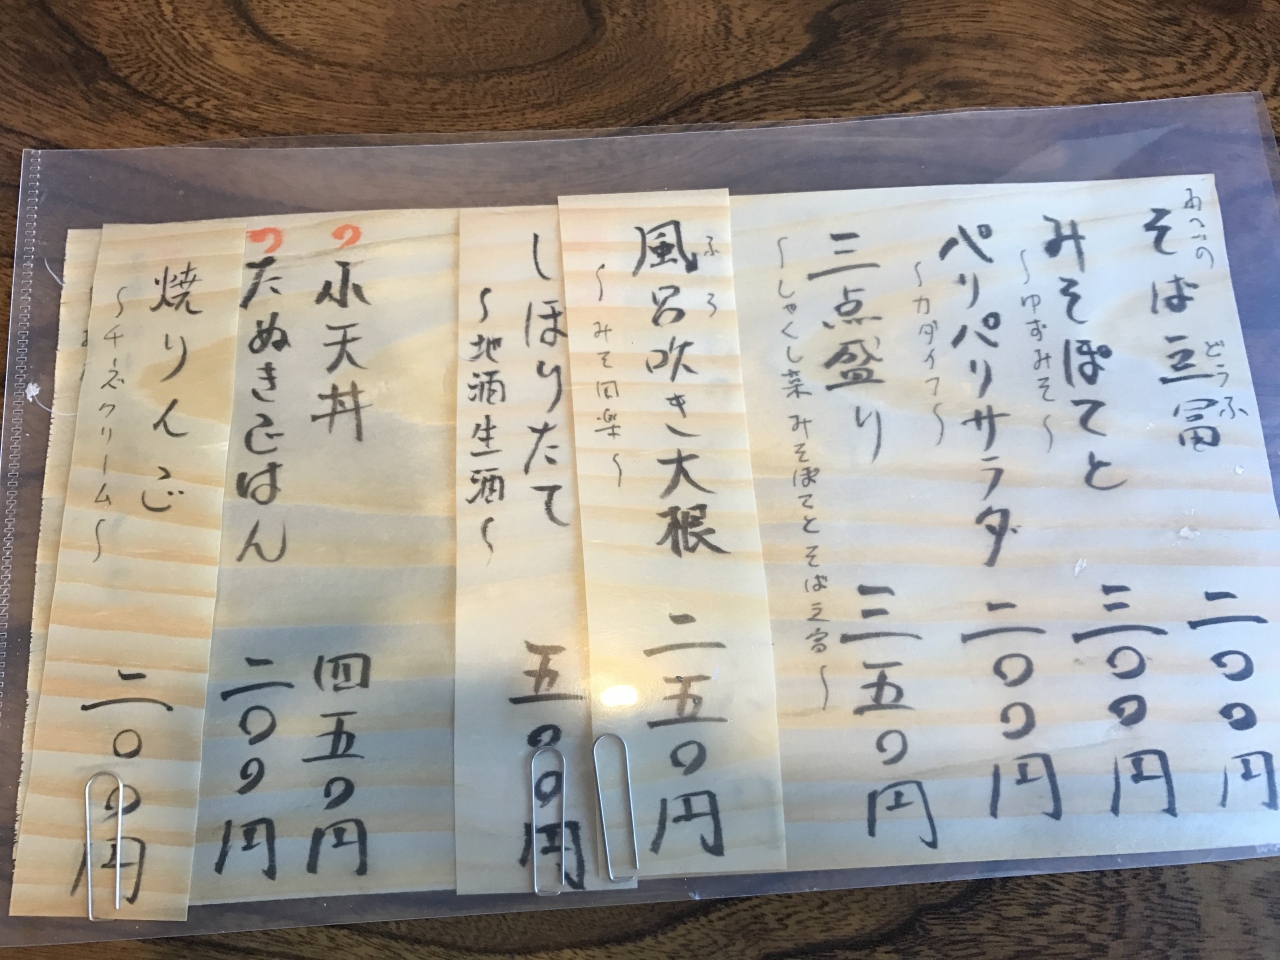 そば豆冨 二〇〇円
どうふ
みそぽてと 三〇〇円
～ゆずみそ～
パリパリサラダ 二〇〇円
～カダイフ～
三点盛り 三五〇円
～しゃくし菜 みそぽてと そば豆冨～
風呂吹き大根 二五〇円
ふろ
～みそ田楽～
しぼりたて 五〇〇円
～地酒生酒～
小天丼 四五〇円
たぬきごはん 二〇〇円
焼りんご 二〇〇円
～チーズクリーム～